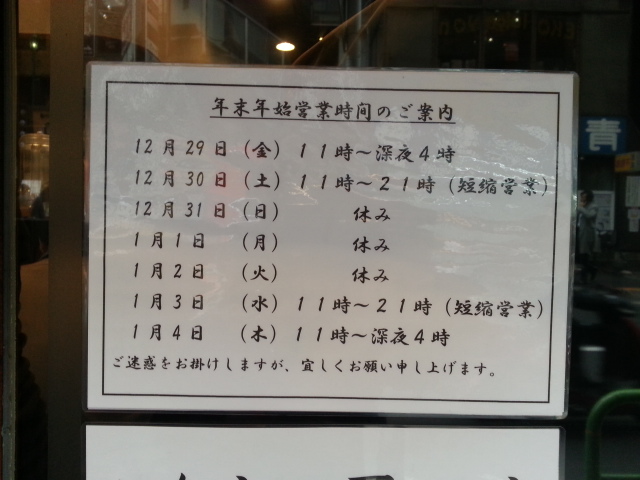 年末年始営業時間のご案内
12月29日（金）11時～深夜4時
12月30日（土）11時～21時（短縮営業）
12月31日（日） 休み
1月1日（月） 休み
1月2日（火） 休み
1月3日（水）11時～21時（短縮営業）
1月4日（木）11時～深夜4時
ご迷惑をお掛けしますが、宜しくお願い申し上げます。
青